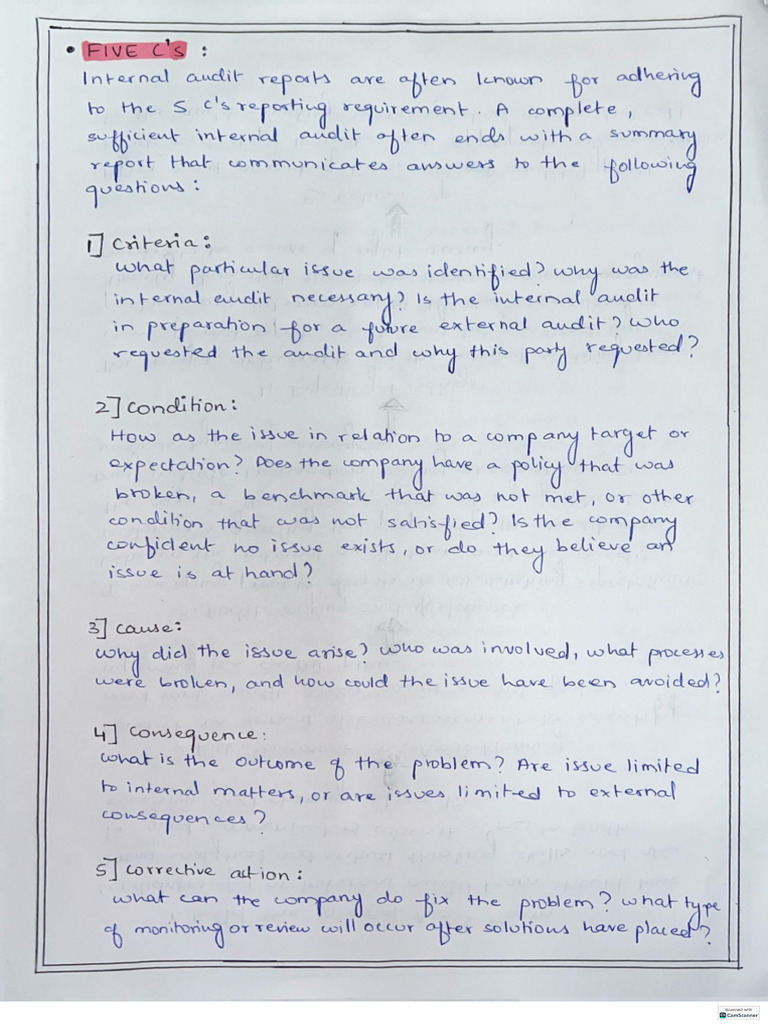 • FIVE C's :
Internal audit reports are often known for adhering
to the 5 C's reporting requirement. A complete,
sufficient internal audit often ends with a summary
report that communicates answers to the following
questions :
1] Criteria :
What particular issue was identified? why was the
internal audit necessary? Is the internal audit
in preparation for a future external audit? Who
requested the audit and why this party requested?
2] Condition :
How as the issue in relation to a company target or
expectation? Does the company have a policy that was
broken, a benchmark that was not met, or other
condition that was not satisfied? Is the company
confident no issue exists, or do they believe an
issue is at hand?
3] Cause :
Why did the issue arise? Who was involved, what processes
were broken, and how could the issue have been avoided?
4] Consequence :
What is the outcome of the problem? Are issue limited
to internal matters, or are issues limited to external
consequences?
5] Corrective action :
What can the company do fix the problem? What type
of monitoring or review will occur after solutions have placed?
Scanned with
CamScanner